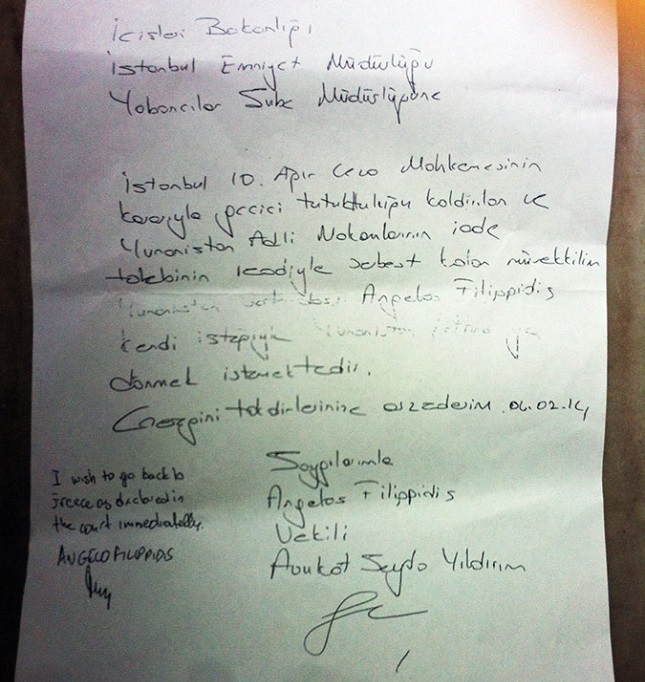 İçişleri Bakanlığı
İstanbul Emniyet Müdürlüğü
Yabancılar Şube Müdürlüğüne
İstanbul 10. Ağır Ceza Mahkemesinin
kararıyla geçici tutukluluğu kaldırılan ve
Yunanistan Adli Makamlarının iade
talebinin reddiyle serbest kalan müvekkilim
Yunanistan Angelos Filippidis
kendi isteğiyle Yunanistan
dönmek istemektedir.
Gereğini takdirlerinize arzederim. 06.02.14
Saygılarımla
Angelos Filippidis
Vekili
Avukat Seyda Yıldırım
I wish to go back to
Greece as declared in
the court immediatelly.
ANGELO FILIPPIDIS